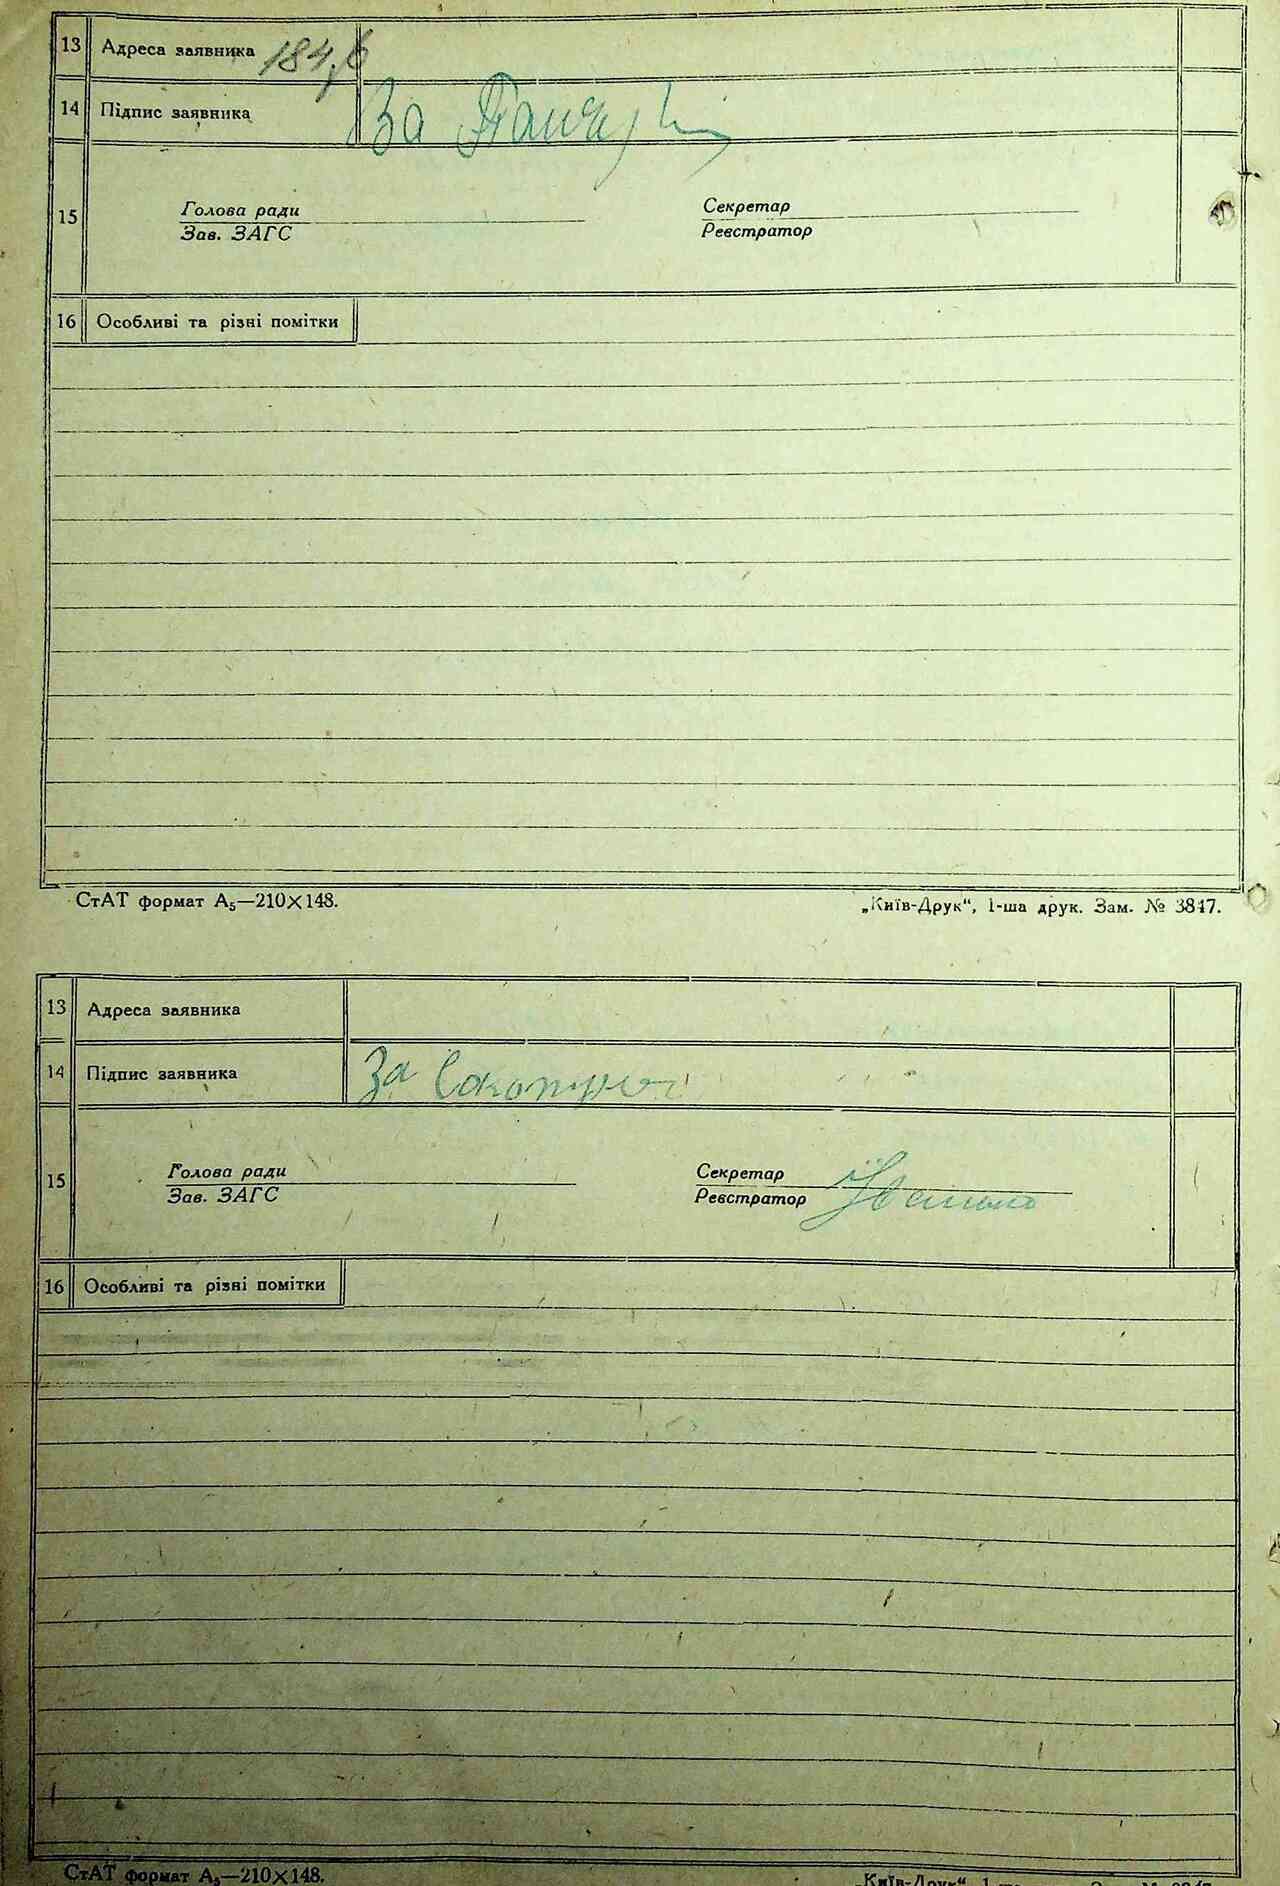 13 Адреса заявника 184,б
14 Підпис заявника За
15 Голова ради Секретар
Зав. ЗАГС Реєстратор
16 Особливі та різні помітки
СтАТ формат А₅—210×148. „Київ-Друк“, 1-ша друк. Зам. № 3847.
13 Адреса заявника
14 Підпис заявника За
15 Голова ради Секретар
Зав. ЗАГС Реєстратор
16 Особливі та різні помітки
СтАТ формат А₅—210×148. „Київ-Друк“, 1